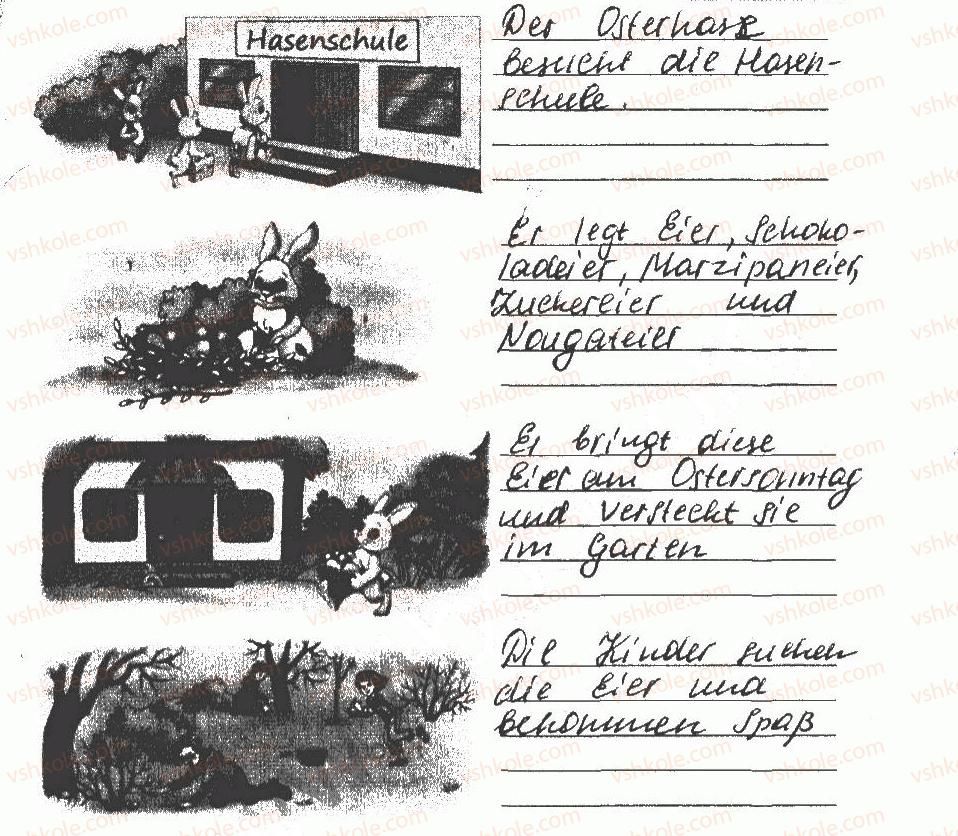 Hasenschule
Der Osterhase
besucht die Hasen-
schule.
Er legt Eier, Schoko-
ladeier, Marzipaneier,
Zuckereier und
Nougateier
Er bringt diese
Eier am Ostersonntag
und versteckt sie
im Garten
Die Kinder suchen
die Eier und
bekommen Spaß
vshkole.com